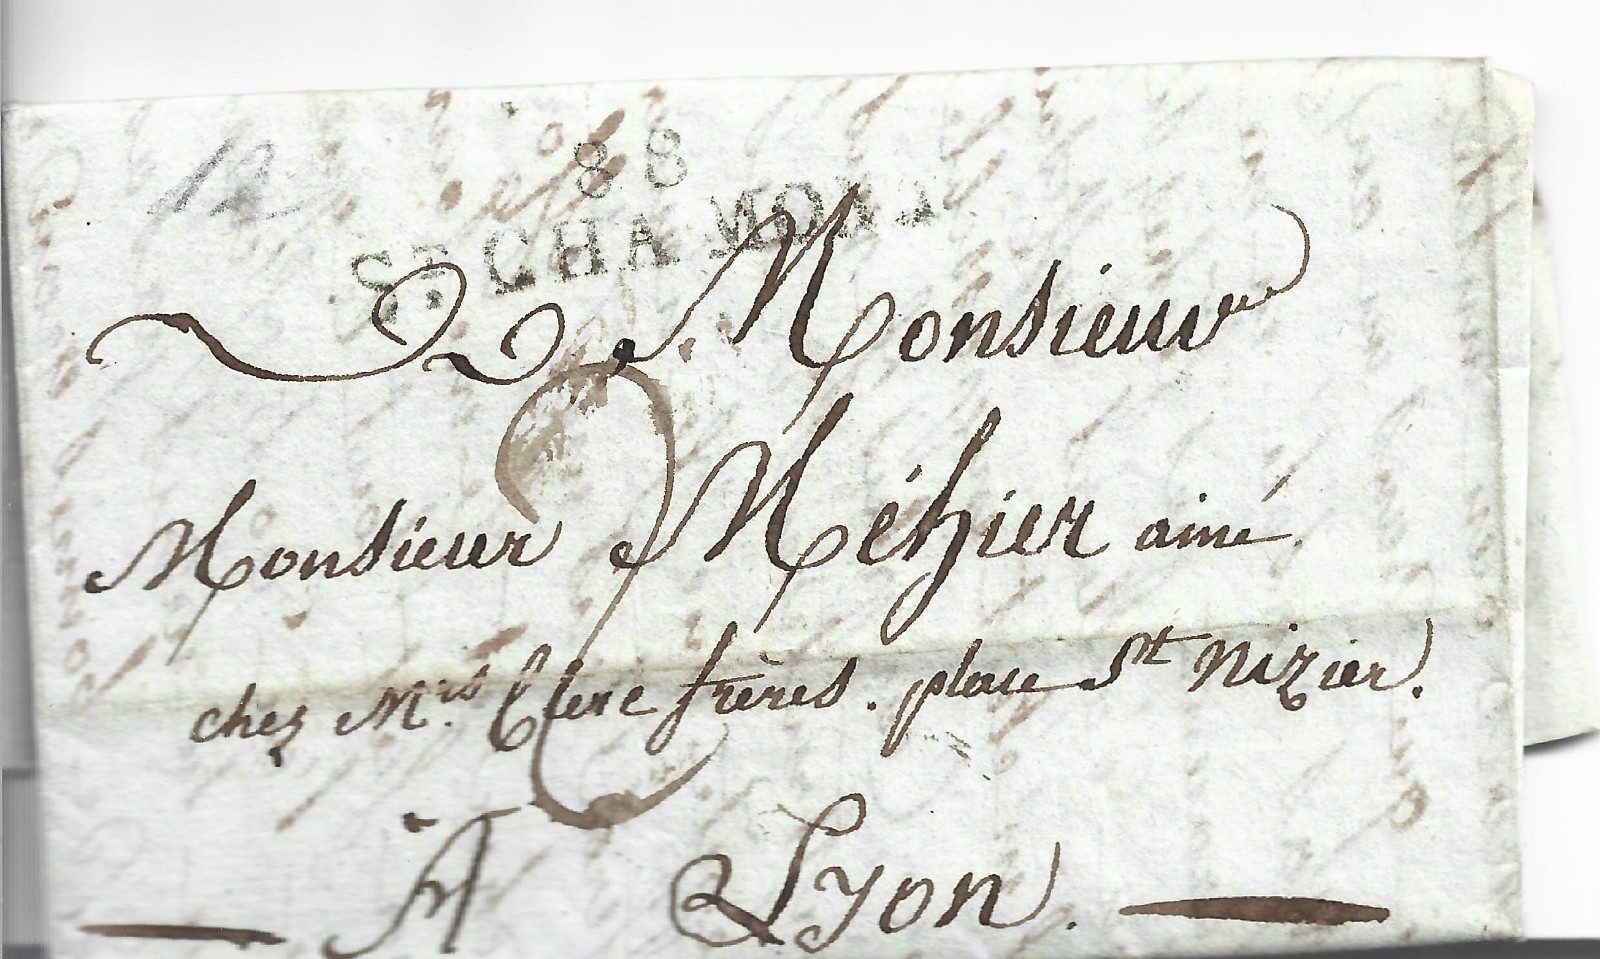 12
88
ST. CHAMONT
Monsieur
Monsieur Méhier ainé
2
chez Mrs. Clerc frères. place St Nizier.
A Lyon.